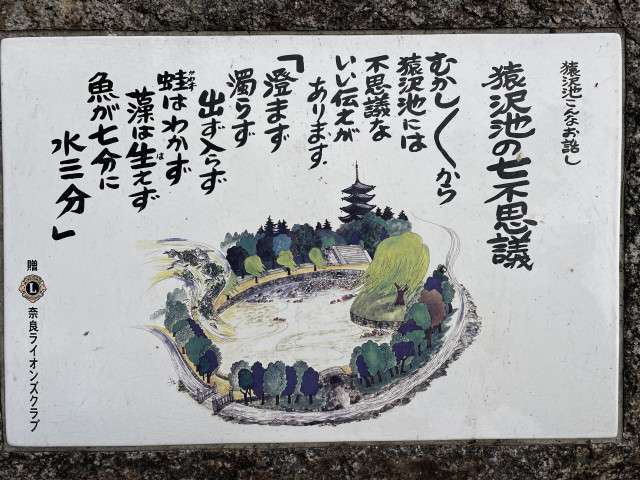 猿沢池こんなお話し
猿沢池の七不思議
むかし〱から
猿沢池には
不思議な
いい伝えが
あります。
「澄まず
濁らず
出ず入らず
蛙はわかず
カワズ
藻は生えず
は
魚が七分に
水三分」
贈
L
奈良ライオンズクラブ